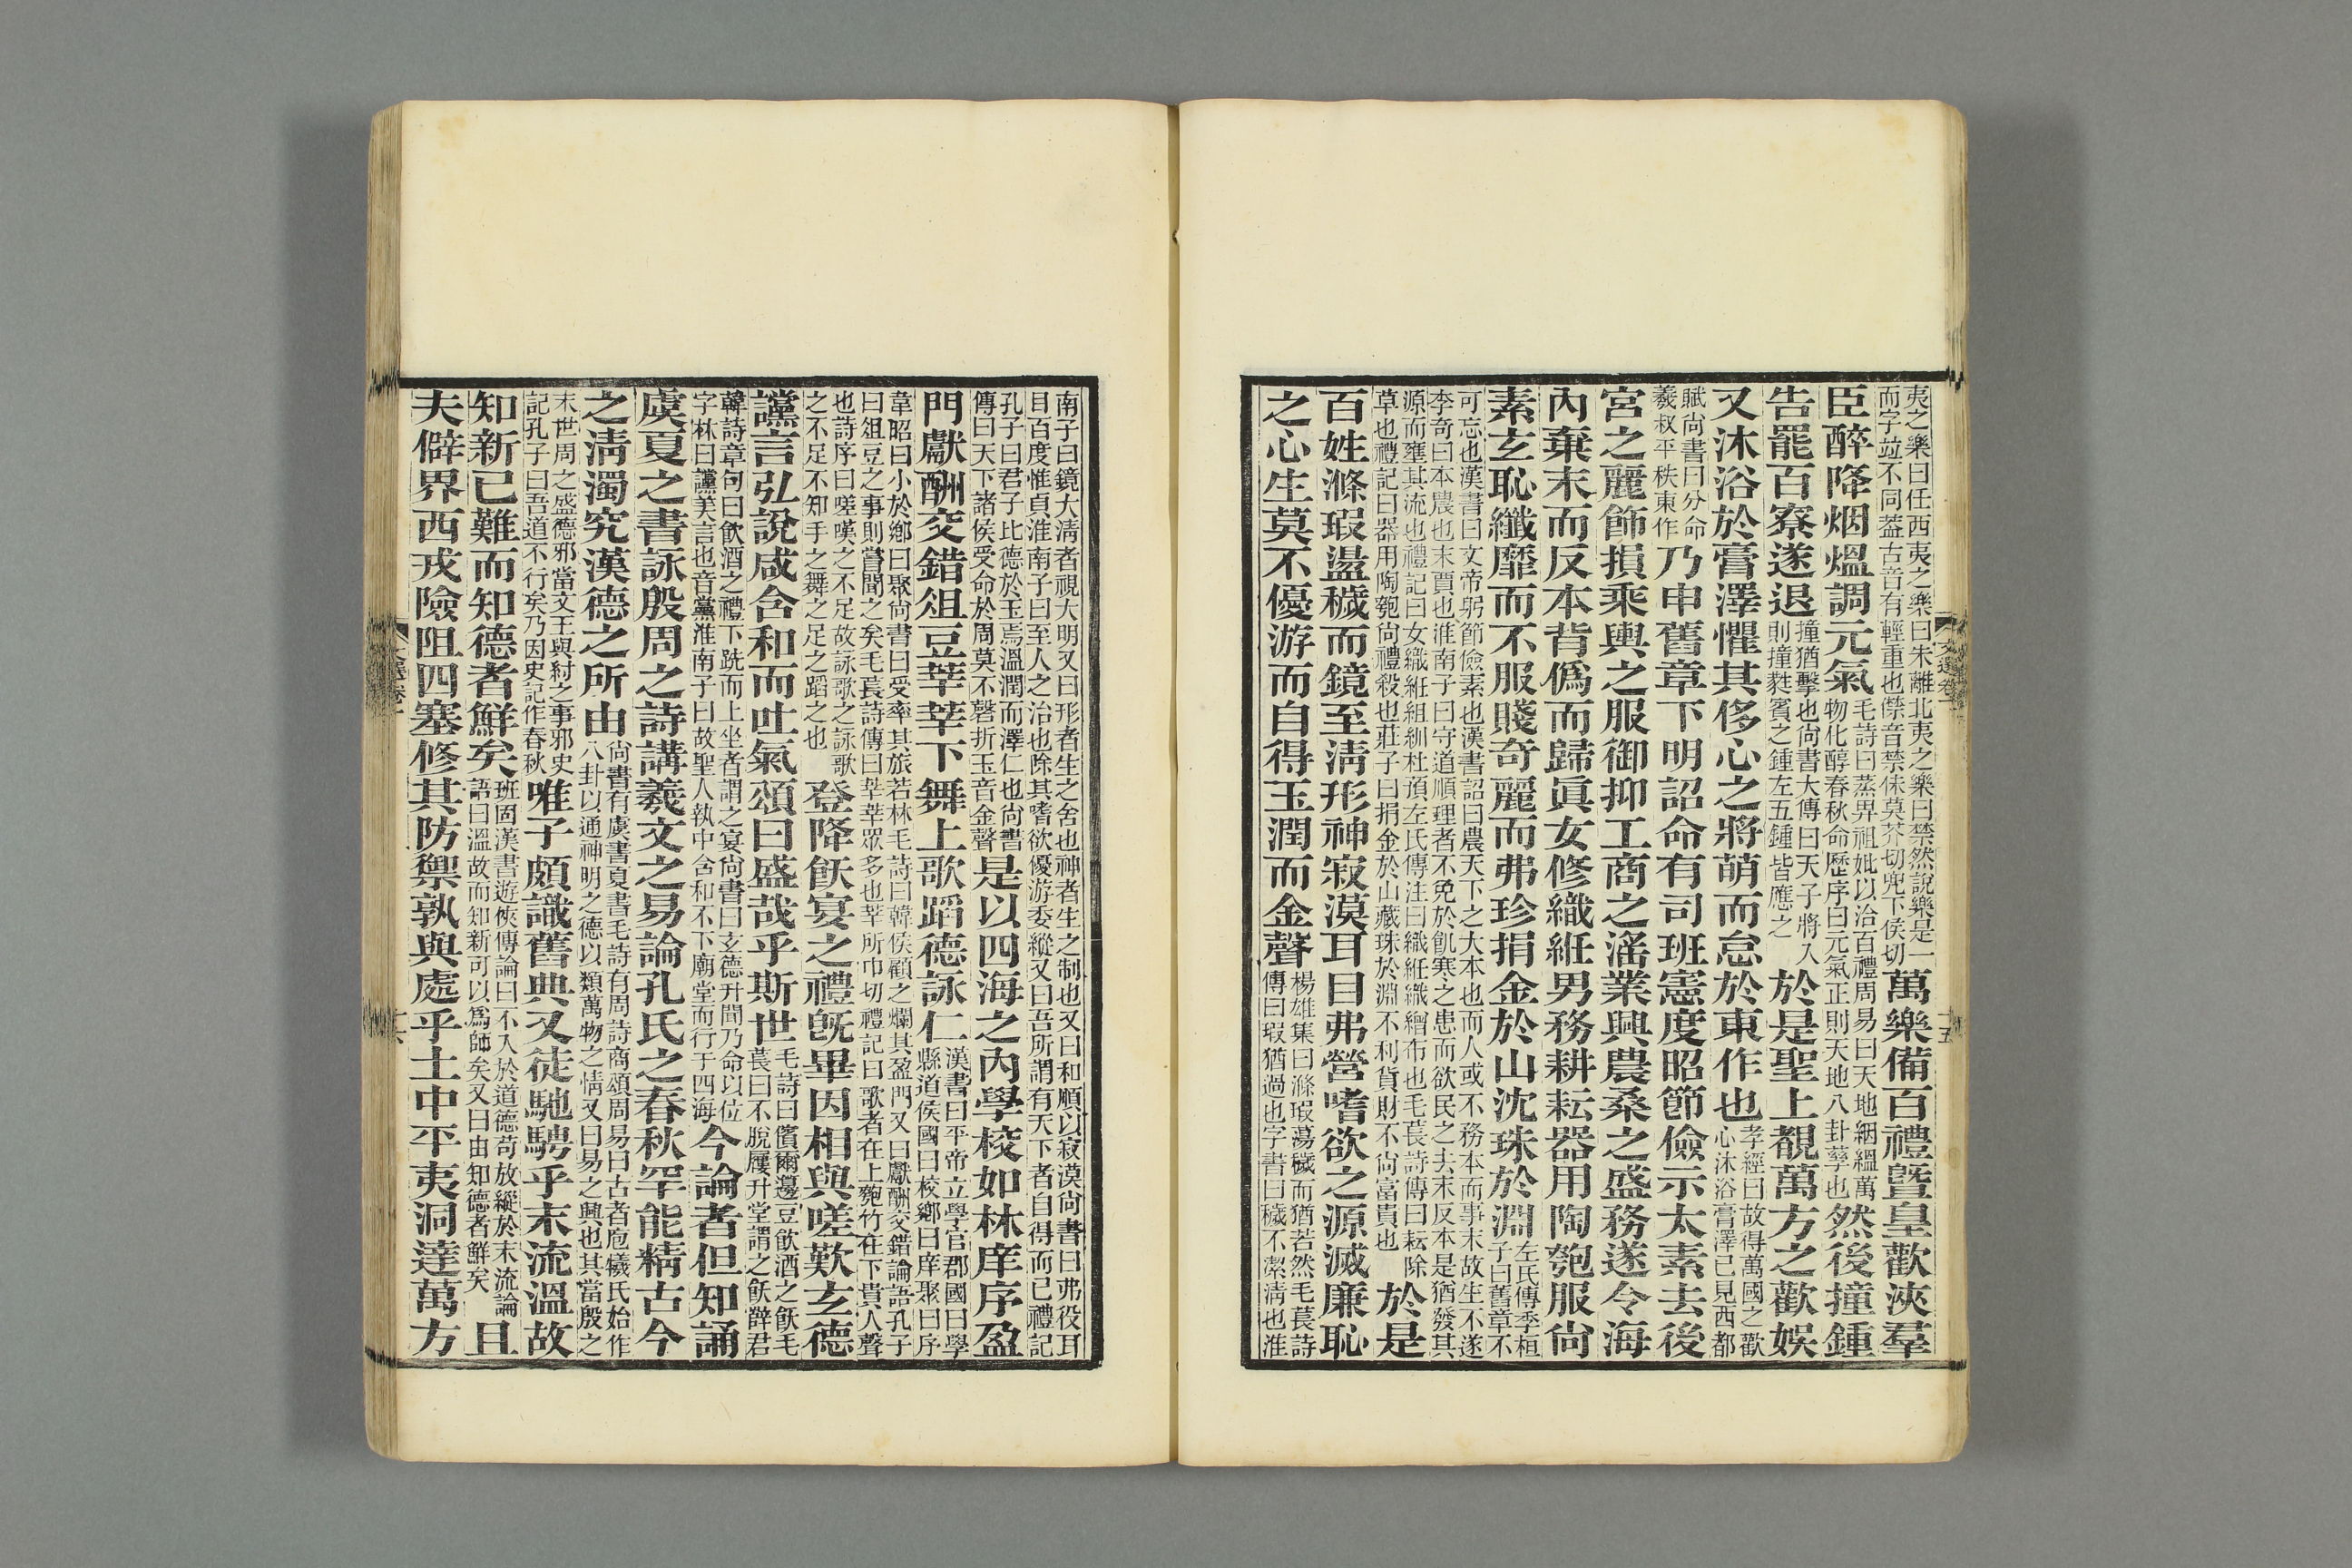 夷之樂曰任西夷之樂曰朱離北夷之樂曰禁然說樂是一
而字竝不同葢古音有輕重也僸音禁佅莫芥切兜下侯切
萬樂備百禮曁皇歡浹羣
臣醉降烟熅調元氣
毛詩曰蒸畀祖妣以洽百禮周易曰天地絪縕萬
物化醇春秋命歷序曰元氣正則天地八卦孳也
然後撞鍾
告罷百寮遂退
撞猶擊也尙書大傳曰天子將入
則撞蕤賓之鍾左五鍾皆應之
於是聖上覩萬方之歡娛
又沐浴於膏澤懼其侈心之將萌而怠於東作也
孝經曰故得萬國之歡
心沐浴膏澤已見西都
賦尙書曰分命
羲叔平秩東作
乃申舊章下明詔命有司班憲度昭節儉示太素去後
宮之麗飾損乘輿之服御抑工商之滛業興農桑之盛務遂令海
內棄末而反本背僞而歸眞女修織紝男務耕耘器用陶匏服尙
素玄恥纖靡而不服賤奇麗而弗珍捐金於山沈珠於淵
左氏傳季桓
子曰舊章不
可忘也漢書曰文帝躬節儉素也漢書詔曰農天下之大本也而人或不務本而事末故生不遂
李奇曰本農也末賈也淮南子曰守道順理者不免於飢寒之患而欲民之去末反本是猶發其
源而壅其流也禮記曰女織紝組紃杜預左氏傳注曰織紝織繒布也毛萇詩傳曰耘除
草也禮記曰器用陶匏尙禮殺也莊子曰捐金於山藏珠於淵不利貨財不尙富貴也
於是
百姓滌瑕盪穢而鏡至淸形神寂漠耳目弗營嗜欲之源滅廉恥
之心生莫不優游而自得玉潤而金聲
楊雄集曰滌瑕蕩穢而猶若然毛萇詩
傳曰瑕猶過也字書曰穢不潔淸也淮
南子曰鏡大淸者視大明又曰形者生之舍也神者生之制也又曰和順以寂漠尙書曰弗役耳
目百度惟貞淮南子曰至人之治也除其嗜欲優游委縱又曰吾所謂有天下者自得而已禮記
孔子曰君子比德於玉焉溫潤而澤仁也尙書
傳曰天下諸侯受命於周莫不磬折玉音金聲
是以四海之內學校如林庠序盈
門獻酬交錯俎豆莘莘下舞上歌蹈德詠仁
漢書曰平帝立學官郡國曰學
縣道侯國曰校鄉曰庠聚曰序
韋昭曰小於鄉曰聚尙書曰受率其旅若林毛詩曰韓侯顧之爛其盈門又曰獻酬交錯論語孔子
曰俎豆之事則嘗聞之矣毛萇詩傳曰莘莘眾多也莘所巾切禮記曰歌者在上匏竹在下貴人聲
也詩序曰嗟嘆之不足故詠歌之詠歌
之不足不知手之舞之足之蹈之也
登降飫宴之禮旣畢因相與嗟歎玄德
讜言弘說咸含和而吐氣頌曰盛哉乎斯世
毛詩曰儐爾籩豆飮酒之飫毛
萇曰不脫屨升堂謂之飫薛君
韓詩章句曰飮酒之禮下跣而上坐者謂之宴尙書曰玄德升聞乃命以位
字林曰讜美言也音黨淮南子曰故聖人執中含和不下廟堂而行于四海
今論者但知誦
虞夏之書詠殷周之詩講羲文之易論孔氏之春秋罕能精古今
之淸濁究漢德之所由
尙書有虞書夏書毛詩有周詩商頌周易曰古者庖犧氏始作
八卦以通神明之德以類萬物之情又曰易之興也其當殷之
末世周之盛德邪當文王與紂之事邪史
記孔子曰吾道不行矣乃因史記作春秋
唯子頗識舊典又徒馳騁乎末流溫故
知新已難而知德者鮮矣
班固漢書遊俠傳論曰不入於道德苟放縱於末流論
語曰溫故而知新可以爲師矣又曰由知德者鮮矣
且
夫僻界西戎險阻四塞修其防禦孰與處乎土中平夷洞達萬方